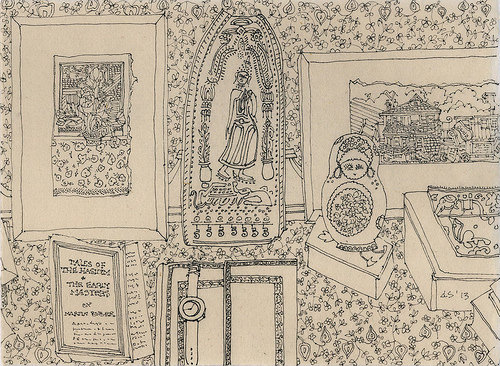 TALES OF
THE HASIDIM
THE EARLY
MASTERS
BY
MARTIN BUBER
d.S.'13